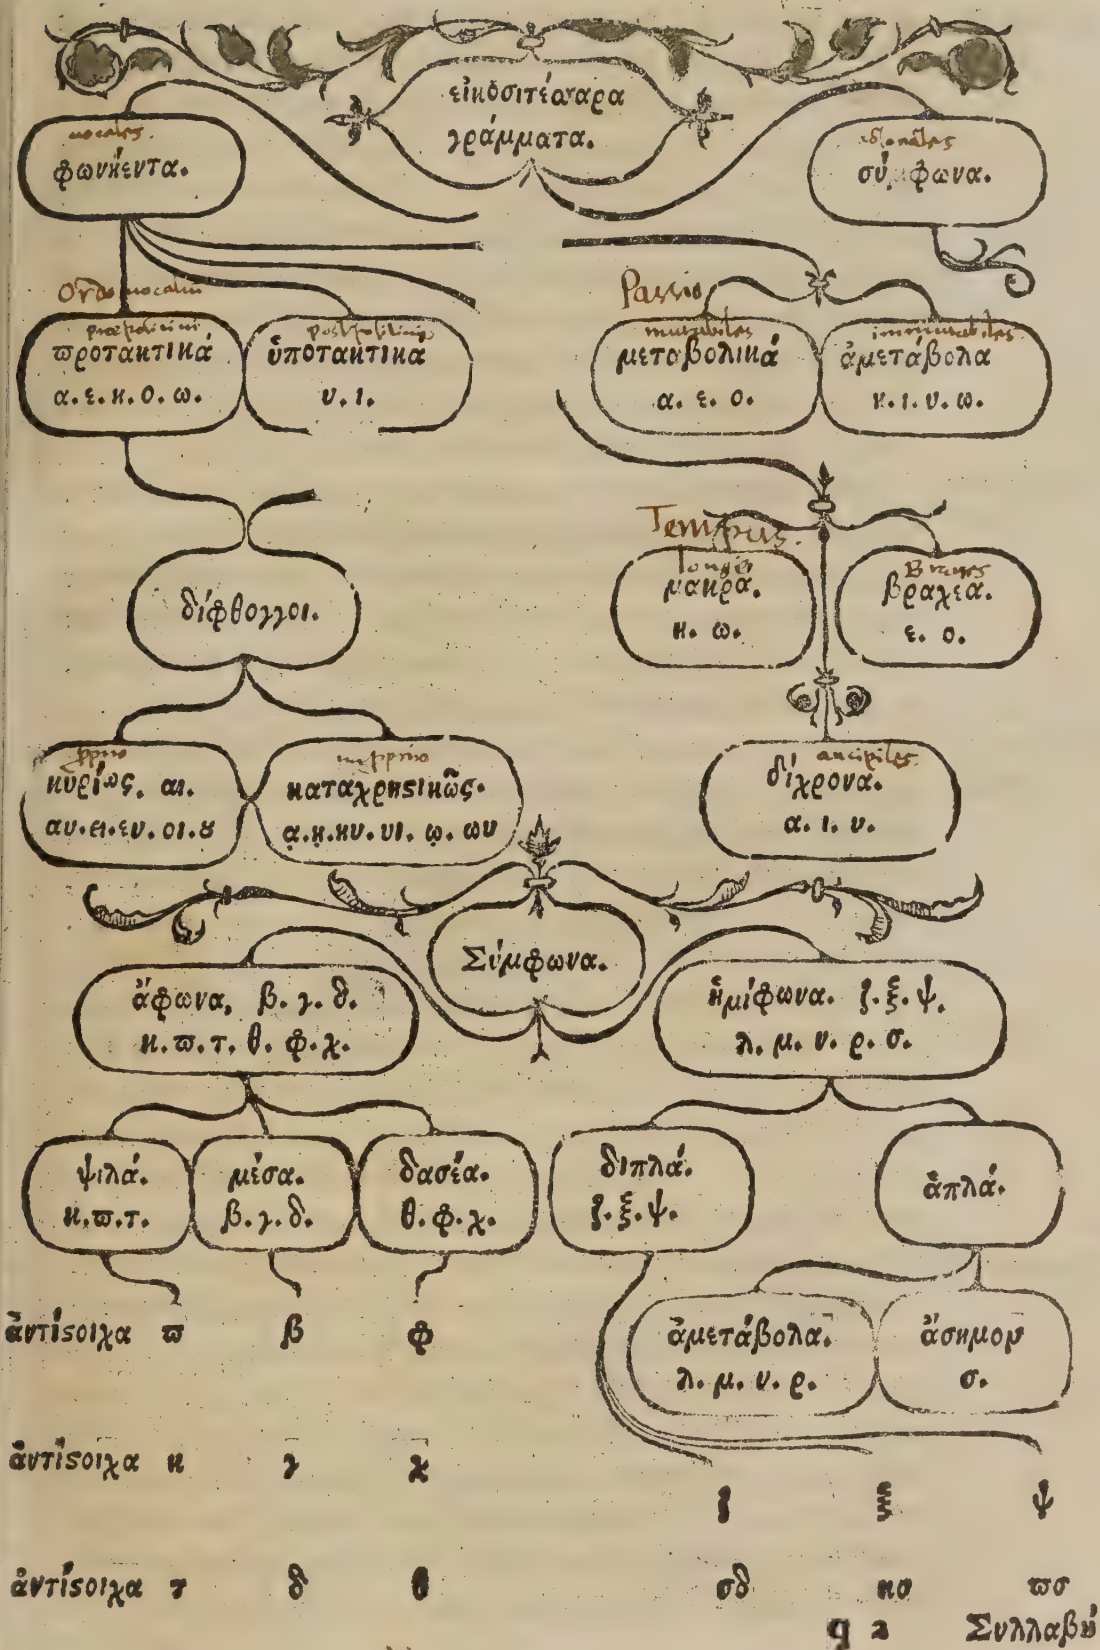 εἰκοσιτέσσαρα
γράμματα.
vocales.
φωνήεντα.
σύμφωνα.
Ordo vocaliū
præpositivi
προτακτικά
α. ε. η. ο. ω.
postpositivi
ὑποτακτικα
υ. ι.
Passio
mutabiles
μεταβολικά
α. ε. ο.
immutabiles
ἀμετάβολα
η. ι. υ. ω.
Tempus.
longe
μακρα.
η. ω.
Breves
βραχεα.
ε. ο.
δίφθογγοι.
ꝓprio
κυρίως. αι.
αυ. ει. ευ. οι. ȣ
καταχρηϛικῶς.
ᾳ. ῃ. ηυ. υι. ῳ. ωυ
ancipites
δίχρονα.
α. ι. υ.
Σύμφωνα.
ἄφωνα, β. γ. δ.
κ. ϖ. τ. θ. φ. χ.
ἡμίφωνα. ζ. ξ. ψ.
λ. μ. ν. ρ. σ.
ψιλά.
κ. ϖ. τ.
μέσα.
β. γ. δ.
δασέα.
θ. φ. χ.
διπλά.
ζ. ξ. ψ.
ἁπλά.
ἀμετάβολα.
λ. μ. ν. ρ.
ἄσημον
σ.
ἀντίϛοιχα ϖ β φ
ἀντίϛοιχα κ γ χ
ζ ξ ψ
ἀντίϛοιχα τ δ θ
σδ κσ ϖσ
q 2 Συλλαβὴ